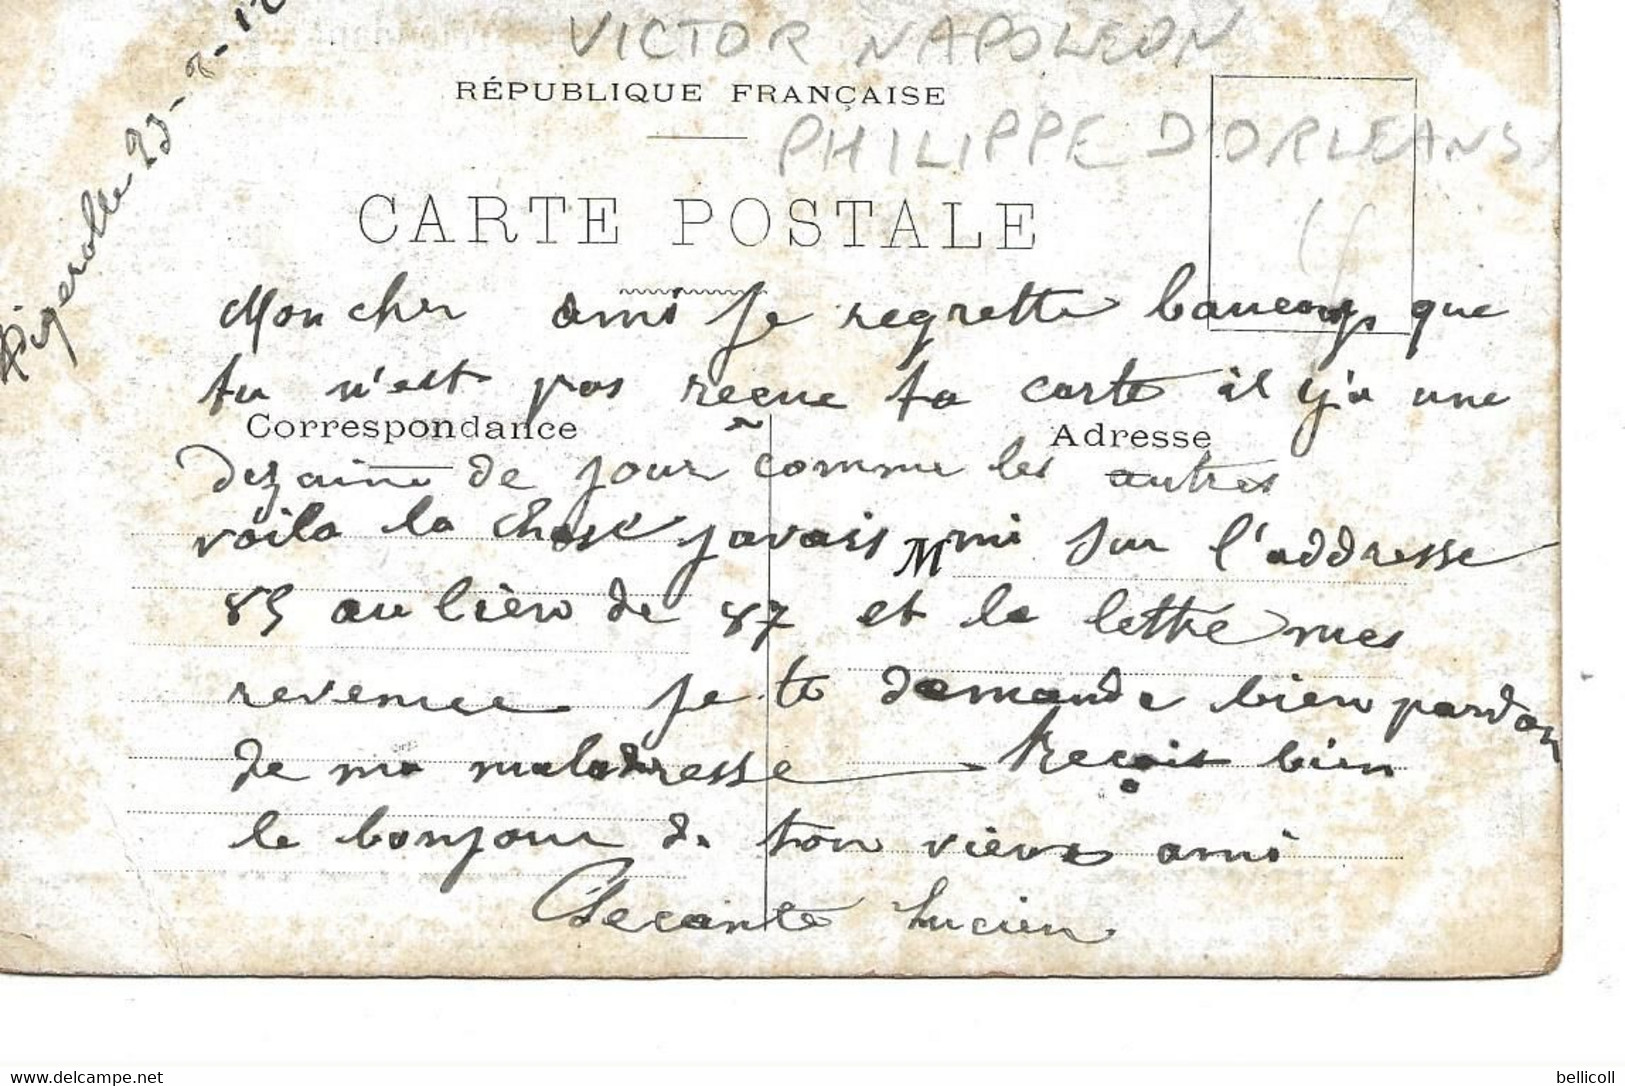 VICTOR NAPOLEON
RÉPUBLIQUE FRANÇAISE
PHILIPPE D'ORLEANS
CARTE POSTALE
Mon cher ami je regrette baucoup que
tu n'est pas reçue ta carte il y'a une
Correspondance
Adresse
dezaine de jour comme les autres
voila la chose javais mi sur l'addresse
85 au lieu de 87 et la lettre mes
revenue je te demande bien pardon
de ma maladresse Reçois bien
le bonjour de ton vieux ami
Lucien
www.delcampe.net
bellicoll